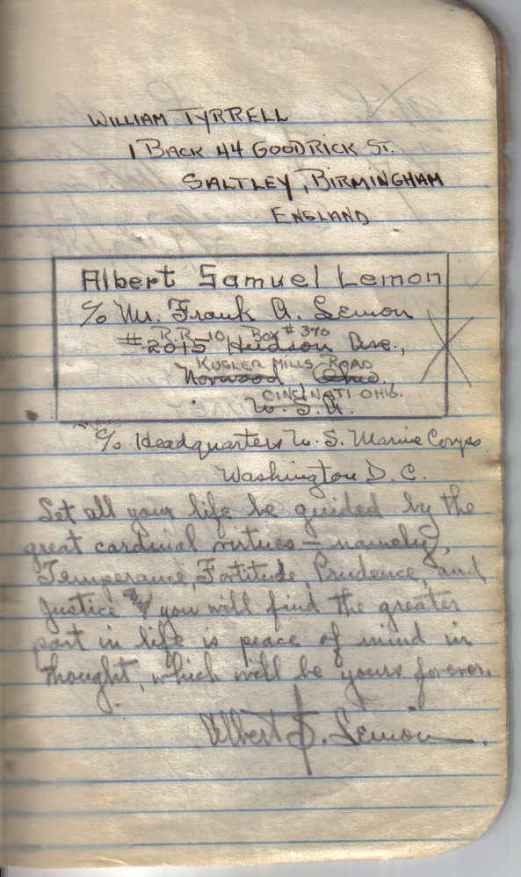 WILLIAM TYRRELL
1 BACK 44 GOODRICK ST.
SALTLEY, BIRMINGHAM
ENGLAND
Albert Samuel Lemon
c/o Mr. Frank A. Lemon
R.R. 10 Box # 340
#2015 Hudson Ave.,
KUGLER MILLS ROAD
Norwood Ohio.
CINCINATI OHIO.
U.S.A.
c/o Headquarters U.S. Marine Corps
Washington D.C.
Let all your life be guided by the
great cardinal virtues – namely,
Temperance, Fortitude, Prudence, and
Justice & you will find the greater
part in life is peace of mind in
thought, which will be yours forever.
Albert S. Lemon.